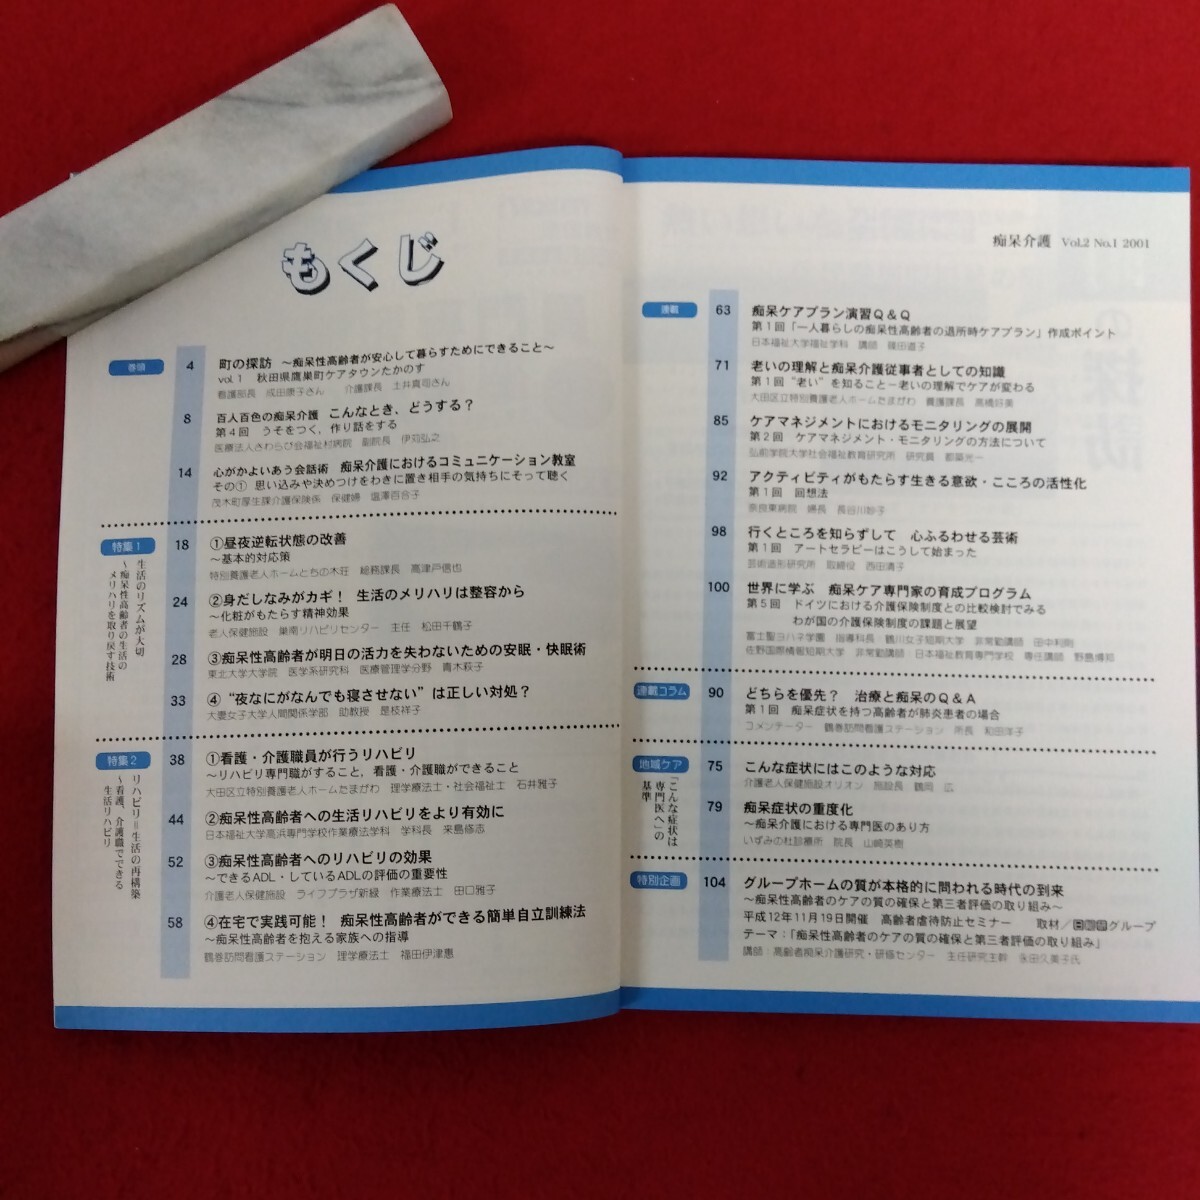 もくじ
巻頭
4
町の探訪 ～痴呆性高齢者が安心して暮らすためにできること～
vol.1 秋田県鷹巣町ケアタウンたかのす
看護部長 成田康子さん 介護課長 土井真司さん
8
百人百色の痴呆介護 こんなとき、どうする？
第4回 うそをつく，作り話をする
医療法人さわらび会福祉村病院 副院長 伊苅弘之
14
心がかよいあう会話術 痴呆介護におけるコミュニケーション教室
その① 思い込みや決めつけをわきに置き相手の気持ちにそって聴く
茂木町厚生課介護保険係 保健婦 塩澤百合子
特集1
生活のリズムが大切
～痴呆性高齢者の生活の
メリハリを取り戻す技術
18
①昼夜逆転状態の改善
～基本的対応策
特別養護老人ホームとちの木荘 総務課長 高津戸信也
24
②身だしなみがカギ！ 生活のメリハリは整容から
～化粧がもたらす精神効果
老人保健施設 巣南リハビリセンター 主任 松田千鶴子
28
③痴呆性高齢者が明日の活力を失わないための安眠・快眠術
東北大学大学院 医学系研究科 医療管理学分野 青木萩子
33
④“夜なにがなんでも寝させない”は正しい対処？
大妻女子大学人間関係学部 助教授 是枝祥子
特集2
リハビリ＝生活の再構築
～看護、介護職でできる
生活リハビリ
38
①看護・介護職員が行うリハビリ
～リハビリ専門職がすること，看護・介護職ができること
大田区立特別養護老人ホームたまがわ 理学療法士・社会福祉士 石井雅子
44
②痴呆性高齢者への生活リハビリをより有効に
日本福祉大学高浜専門学校作業療法学科 学科長 来島修志
52
③痴呆性高齢者へのリハビリの効果
～できるADL・しているADLの評価の重要性
介護老人保健施設 ライフプラザ新緑 作業療法士 田口雅子
58
④在宅で実践可能！ 痴呆性高齢者ができる簡単自立訓練法
～痴呆性高齢者を抱える家族への指導
鶴巻訪問看護ステーション 理学療法士 福田伊津恵
痴呆介護 Vol.2 No.1 2001
連載
63
痴呆ケアプラン演習Q＆Q
第1回「一人暮らしの痴呆性高齢者の退所時ケアプラン」作成ポイント
日本福祉大学福祉学科 講師 篠田道子
71
老いの理解と痴呆介護従事者としての知識
第1回 “老い”を知ること－老いの理解でケアが変わる
大田区立特別養護老人ホームたまがわ 養護課長 高橋好美
85
ケアマネジメントにおけるモニタリングの展開
第2回 ケアマネジメント・モニタリングの方法について
弘前学院大学社会福祉教育研究所 研究員 都築光一
92
アクティビティがもたらす生きる意欲・こころの活性化
第1回 回想法
奈良東病院 婦長 長谷川妙子
98
行くところを知らずして 心ふるわせる芸術
第1回 アートセラピーはこうして始まった
芸術造形研究所 取締役 西田清子
100
世界に学ぶ 痴呆ケア専門家の育成プログラム
第5回 ドイツにおける介護保険制度との比較検討でみる
わが国の介護保険制度の課題と展望
富士聖ヨハネ学園 指導科長 鶴川女子短期大学 非常勤講師 田中利則
佐野国際情報短期大学 非常勤講師 日本福祉教育専門学校 専任講師 野島博知
連載コラム
90
どちらを優先？ 治療と痴呆のQ＆A
第1回 痴呆症状を持つ高齢者が肺炎患者の場合
コメンテーター 鶴巻訪問看護ステーション 所長 和田洋子
地域ケア
「こんな症状は
専門医へ」の
基準
75
こんな症状にはこのような対応
介護老人保健施設オリオン 施設長 鶴岡 広
79
痴呆症状の重度化
～痴呆介護における専門医のあり方
いずみの杜診療所 院長 山崎英樹
特別企画
104
グループホームの質が本格的に問われる時代の到来
～痴呆性高齢者のケアの質の確保と第三者評価の取り組み～
平成12年11月19日開催 高齢者虐待防止セミナー 取材／日総研グループ
テーマ：「痴呆性高齢者のケアの質の確保と第三者評価の取り組み」
講師：高齢者痴呆介護研究・研修センター 主任研究主幹 永田久美子氏